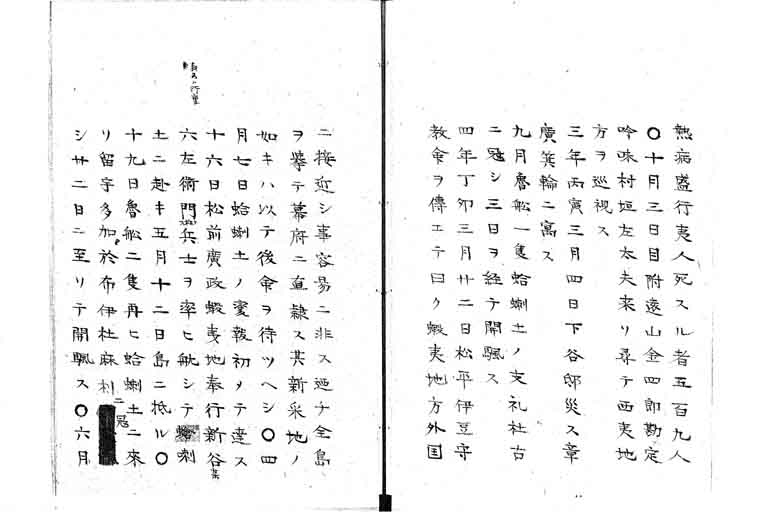 熱病盛行夷人死スル者五百九人
〇十月三日目附遠山金四郎勘定
吟味村垣左太夫来リ尋テ西夷地
方ヲ巡視ス
三年丙寅三月四日下谷邸災ス章
廣箕輪ニ寓ス
九月魯船一隻蛤蜊土ノ支礼杜古
ニ冦シ三日ヲ経テ開颿ス
四年丁卯三月廿二日松平伊豆守
教命ヲ傳エテ曰ク蝦夷地方外国
ニ接近シ事容易ニ非ス廼チ全島
ヲ挙テ幕府ニ直隷ス其新采地ノ
如キハ以テ後命ヲ待ツヘシ〇四
月七日蛤蜊土ノ変報初メテ達ス
十六日松前廣政蝦夷地奉行新谷
六左衛門兵士ヲ率ヒ航シテ蛤蜊
土ニ赴キ五月十二日島ニ抵ル〇
十九日魯船二隻再ヒ蛤蜊土ニ来
リ留宇多加於布伊杜麻利ニ冦
シ廿二日ニ至リテ開颿ス〇六月